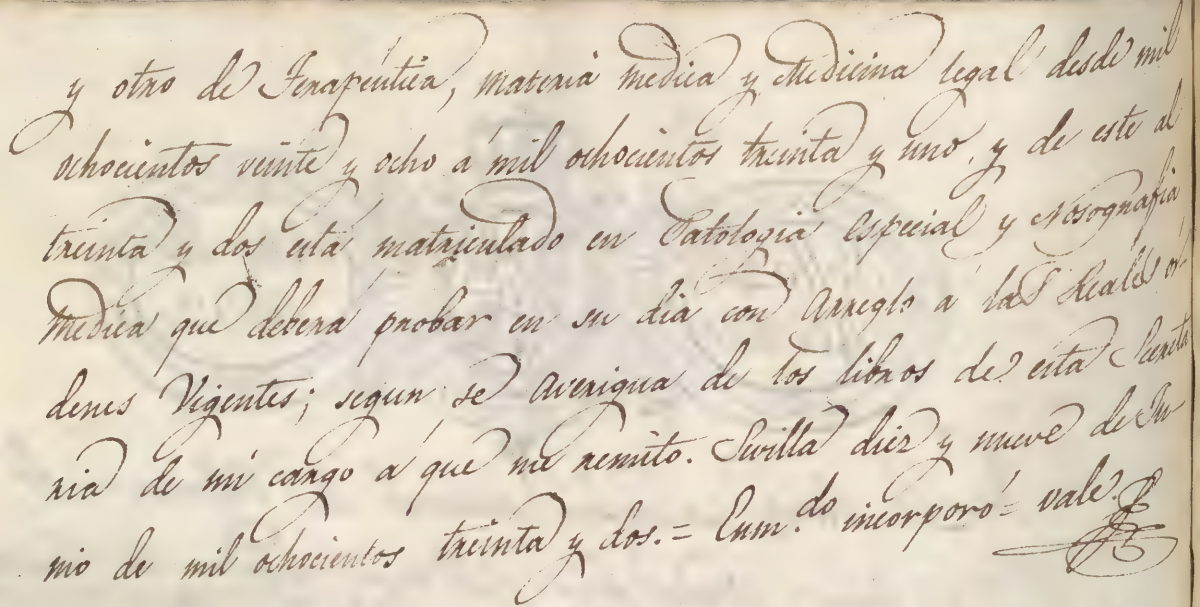 y otro de Terapéutica, materia medica y Medicina legal desde mil
ochocientos veinte y ocho á mil ochocientos treinta y uno, y de este al
treinta y dos está matriculado en Patologia especial y Nosografia
medica que deberá probar en su dia con arreglo á las Reales or-
denes vigentes; segun se averigua de los libros de esta Secreta
ria de mi cargo á que me remito. Sevilla diez y nueve de Ju
nio de mil ochocientos treinta y dos. = Enm.do incorporó = vale.